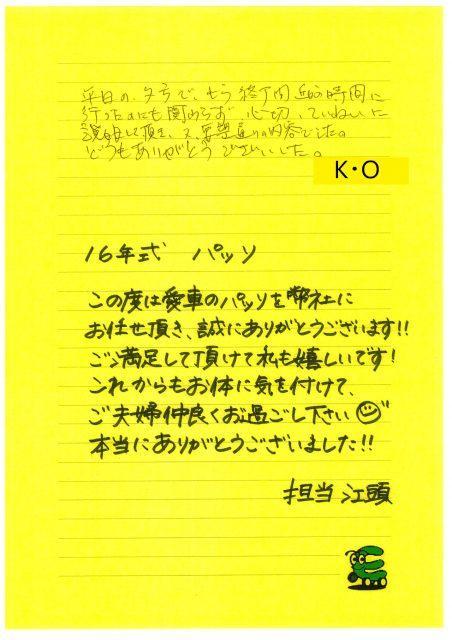 平日の、夕方で、もう終了間近の時間に
行ったのにも関わらず 心切、ていねいに
説明して頂き、又、要望通りの内容でした。
どうもありがとうございました。
K・O
16年式 パッソ
この度は愛車のパッソを弊社に
お任せ頂き、誠にありがとうございます!!
ご満足して頂けて私も嬉しいです!
これからもお体に気を付けて、
ご夫婦仲良くお過ごし下さい
本当にありがとうございました!!
担当 江頭